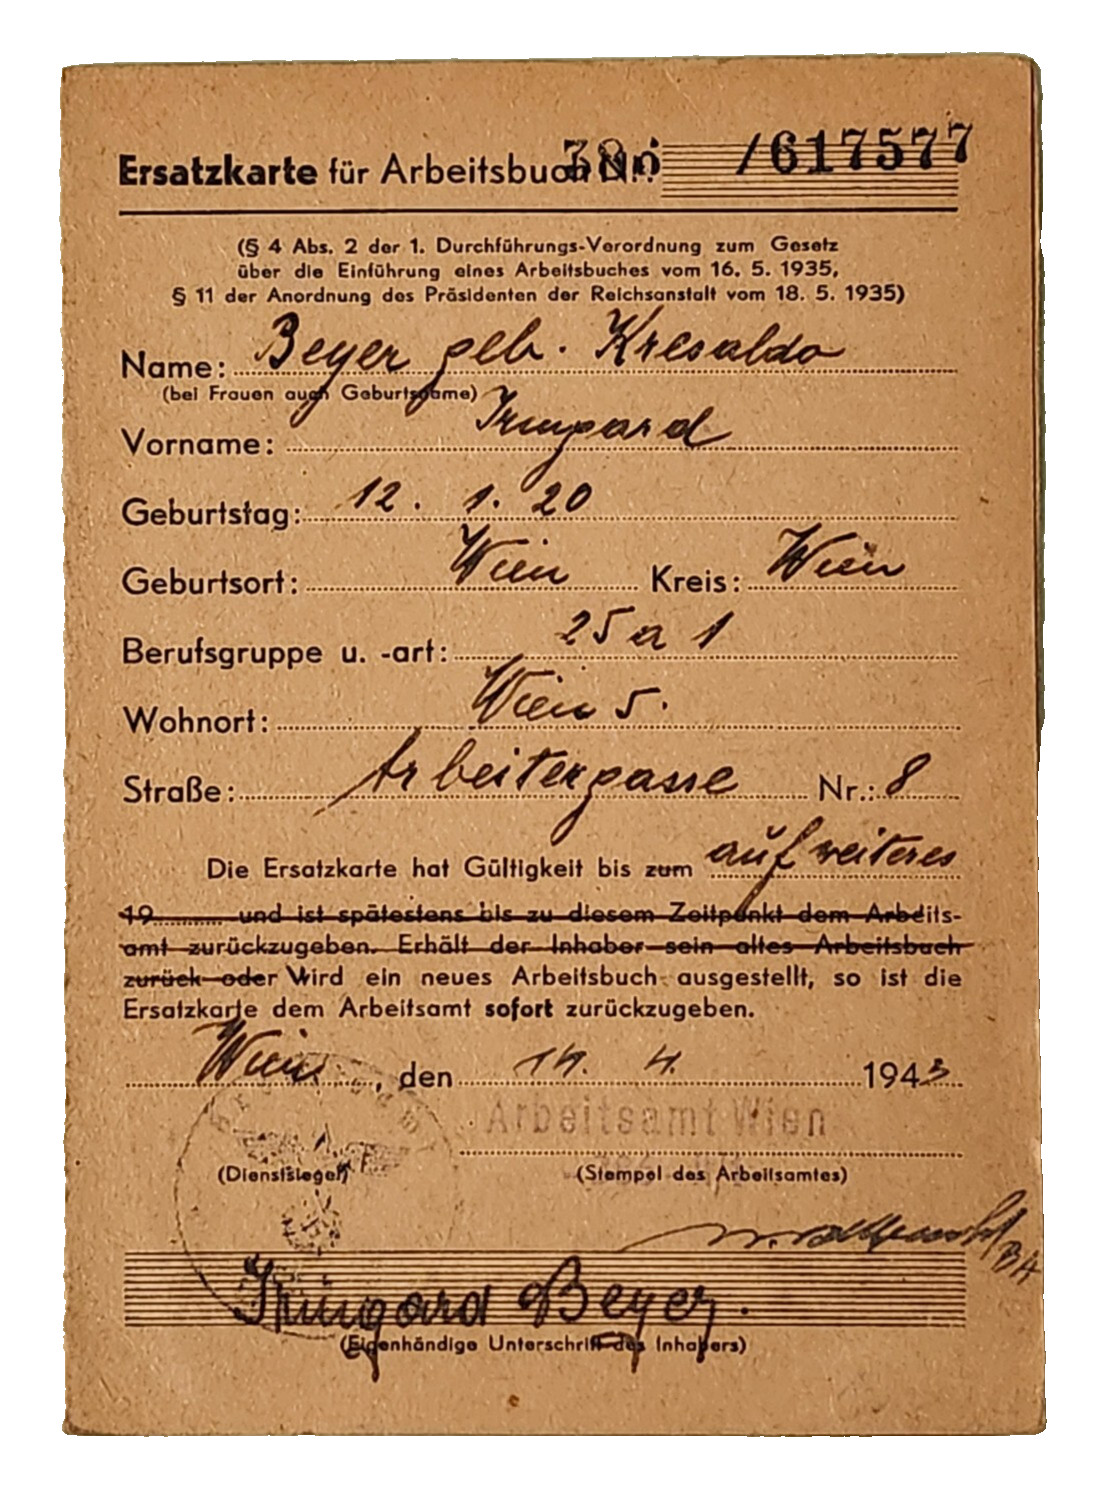 Ersatzkarte für Arbeitsbuch Nr. /617577
(§ 4 Abs. 2 der 1. Durchführungs-Verordnung zum Gesetz
über die Einführung eines Arbeitsbuches vom 16. 5. 1935,
§ 11 der Anordnung des Präsidenten der Reichsanstalt vom 18. 5. 1935)
Name: Beyer geb. Kresaldo
(bei Frauen auch Geburtsname)
Vorname: Irmgard
Geburtstag: 12. 1. 20
Geburtsort: Wien Kreis: Wien
Berufsgruppe u. -art: 25 a 1
Wohnort: Wien 5.
Straße: Arbeitergasse Nr.: 8
Die Ersatzkarte hat Gültigkeit bis zum auf weiteres
19 und ist spätestens bis zu diesem Zeitpunkt dem Arbeits-
amt zurückzugeben. Erhält der Inhaber sein altes Arbeitsbuch
zurück oder Wird ein neues Arbeitsbuch ausgestellt, so ist die
Ersatzkarte dem Arbeitsamt sofort zurückzugeben.
Wien, den 14. 4. 1943
Arbeitsamt Wien
(Dienstsiegel) (Stempel des Arbeitsamtes)
Irmgard Beyer.
(Eigenhändige Unterschrift des Inhabers)